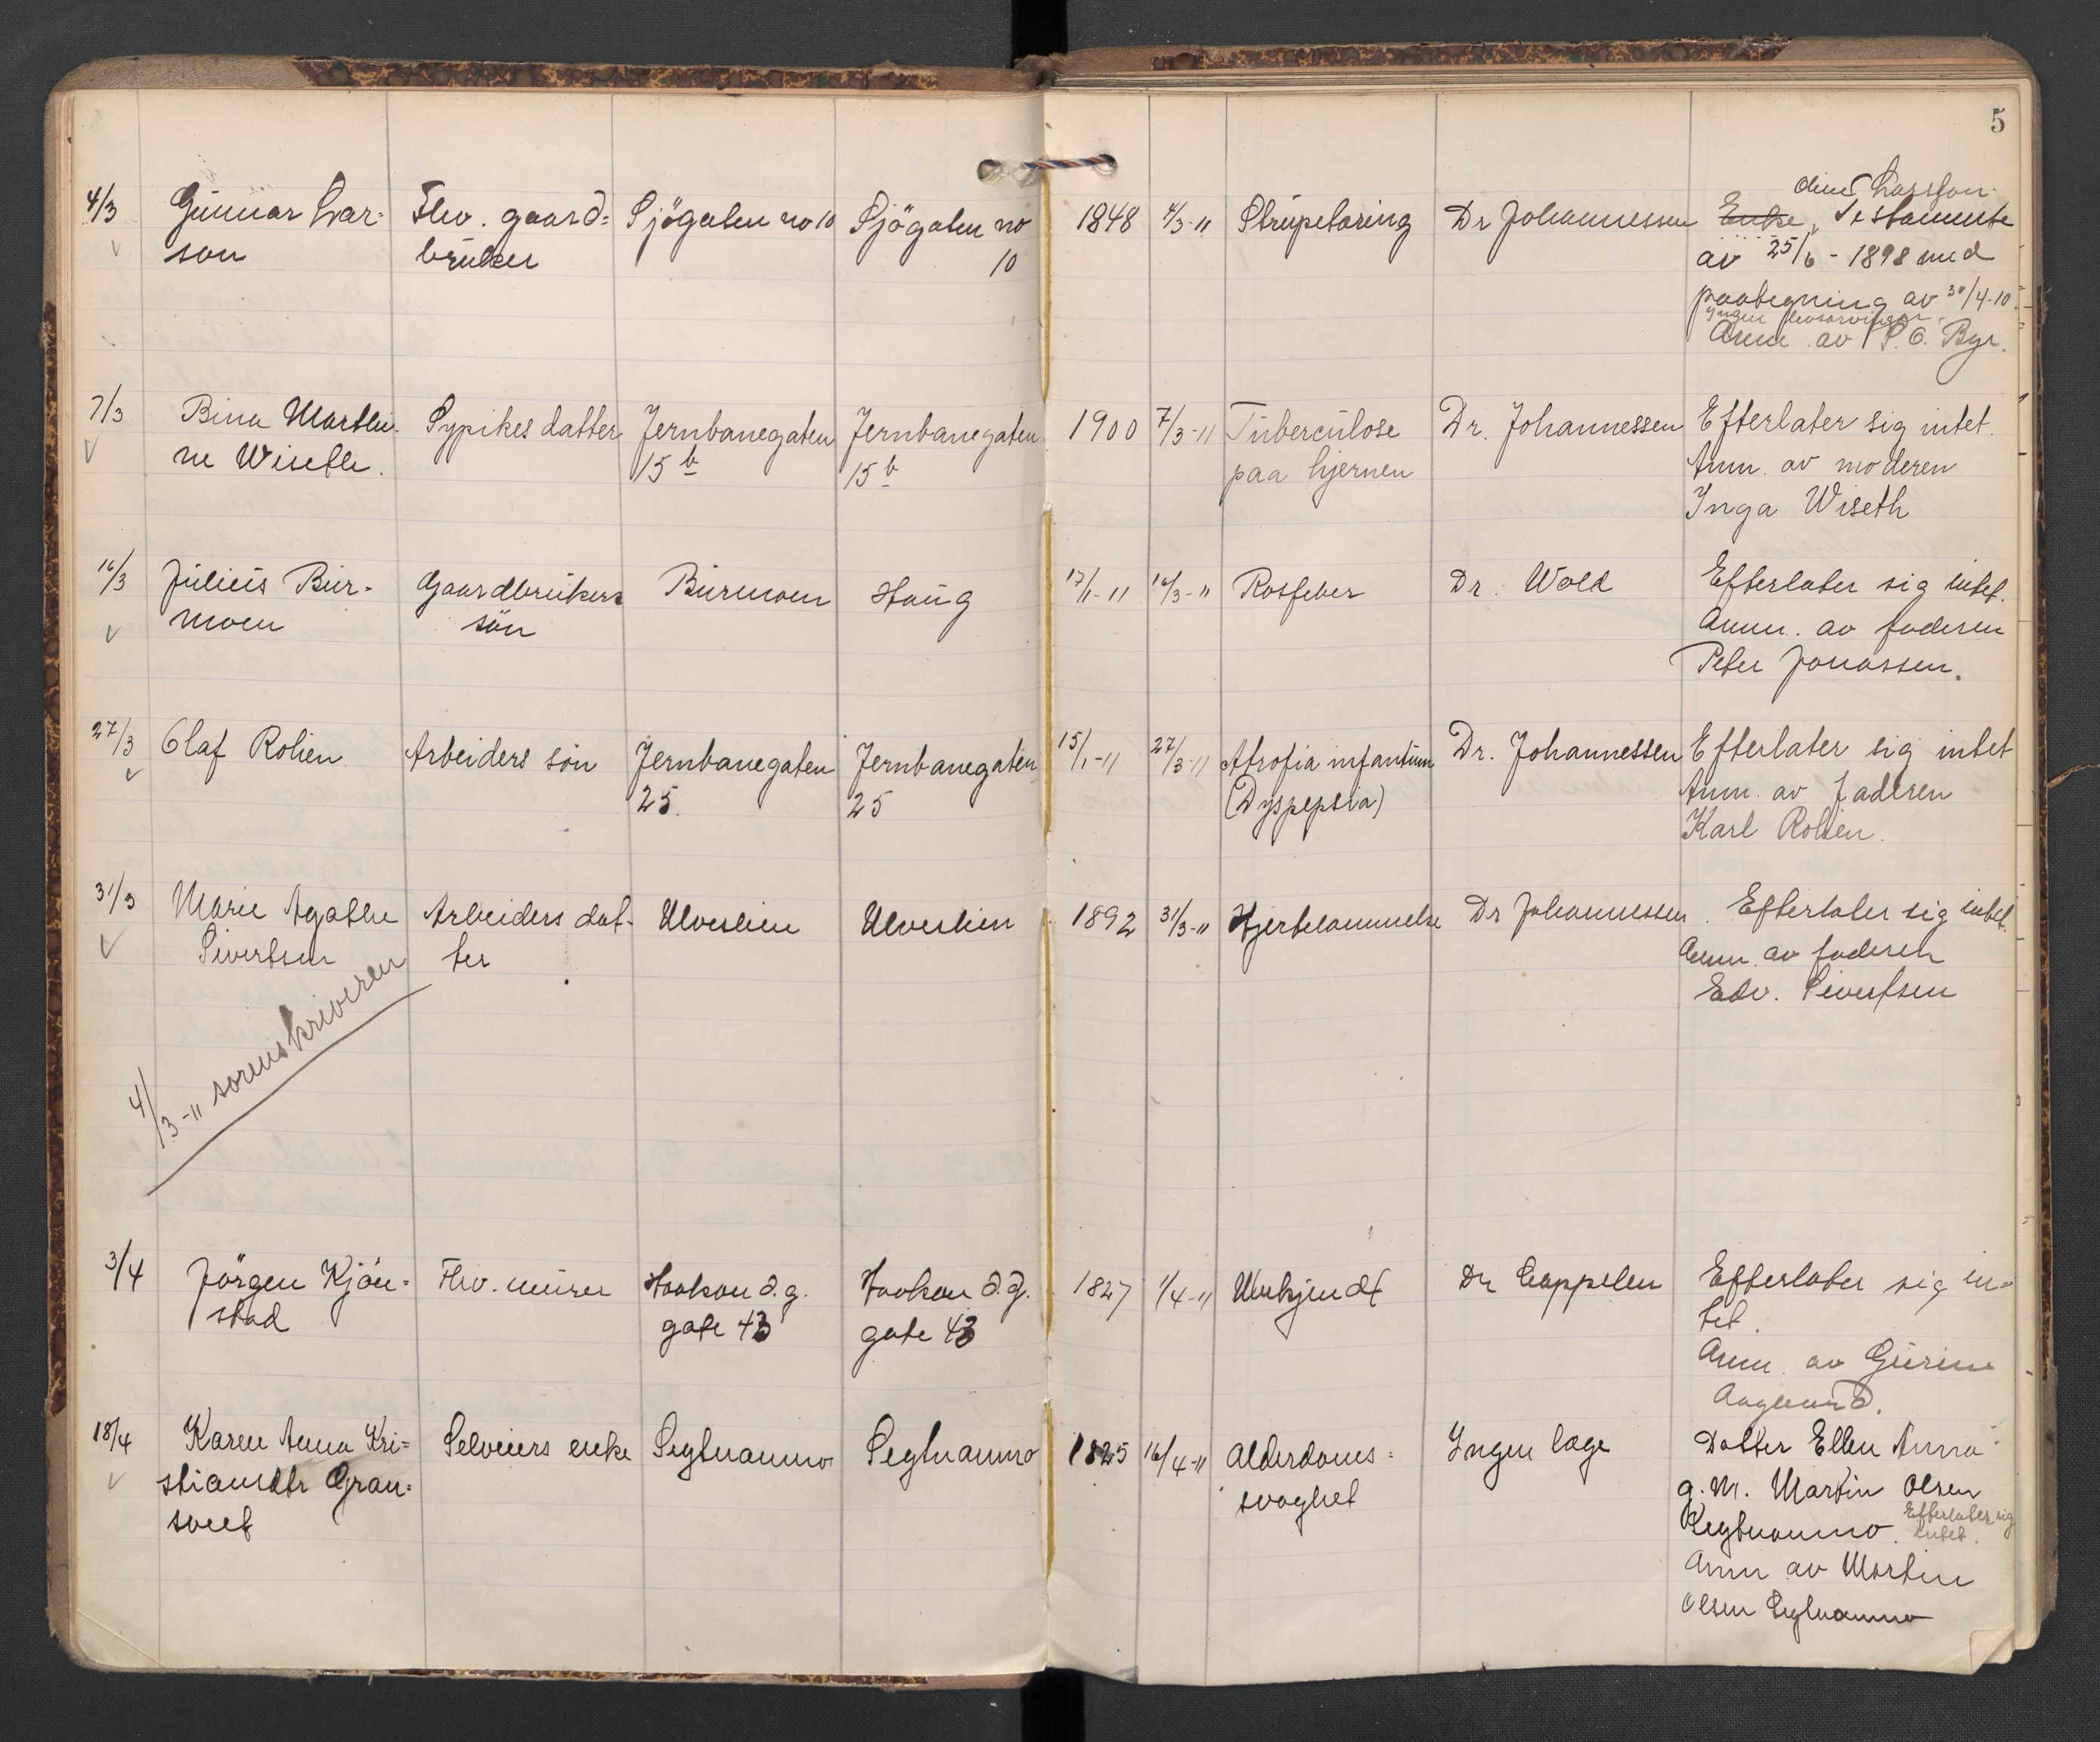 5
4/3 Gunnar Lar- Fhv. gaard= Sjögaten no 10 Sjögaten no 1848 4/3-11 Strupetæring Dr Johannessen Enke, Testamente
son bruker 10 av 25/6 - 1898 med
paategning av 30/4-10.
Ingen livsarvinger.
Anm. av P. O. Byr.
7/3 Bina Marthi- Sypikes datter Jernbanegaten Jernbanegaten 1900 7/3-11 Tuberculose Dr. Johannessen Efterlater sig intet.
ne Wiseth. 15b 15b paa hjernen Anm. av moderen
Inga Wiseth
16/3 Julius Bur- Gaardbrukers Burmoen Haug 17/1-11 16/3-11 Rosfeber Dr. Wold Efterlater sig intet.
moen sön Anm. av faderen
Peter Jonassen.
27/3 Olaf Rolien Arbeiders sön Jernbanegaten Jernbanegaten 15/1-11 27/3-11 Atrofia infantum Dr. Johannessen Efterlater sig intet
25. 25 (Dyspepsia) Anm. av Faderen
Karl Rolien.
31/3 Marie Agathe Arbeiders dat- Ulveslien Ulveslien 1892 31/3-11 Hjertelammelse Dr Johannessen. Efterlater sig intet.
Sivertsen ter Anm. av faderen
Edv. Sivertsen
4/3-11 sorenskriveren
3/4 Jörgen Kjön= Fhv. murer Haakon d.g. Haakon d.g. 1827 1/4-11 Ubekjendt Dr Cappelen Efterlater sig in=
stad gate 43 gate 43 tet.
Anm. av Gurine
Aaglund.
18/4 Karen Anna Kri= Selveiers enke Segtnanmo Segtnanmo 1825 16/4-11 Alderdoms= Ingen læge Datter Ellen Anna
stiansdtr Gran= svaghet g. m. Martin Olsen
Segtnanmo. Efterlater sig
intet.
Anm av Martin
Olsen Segtnanmo